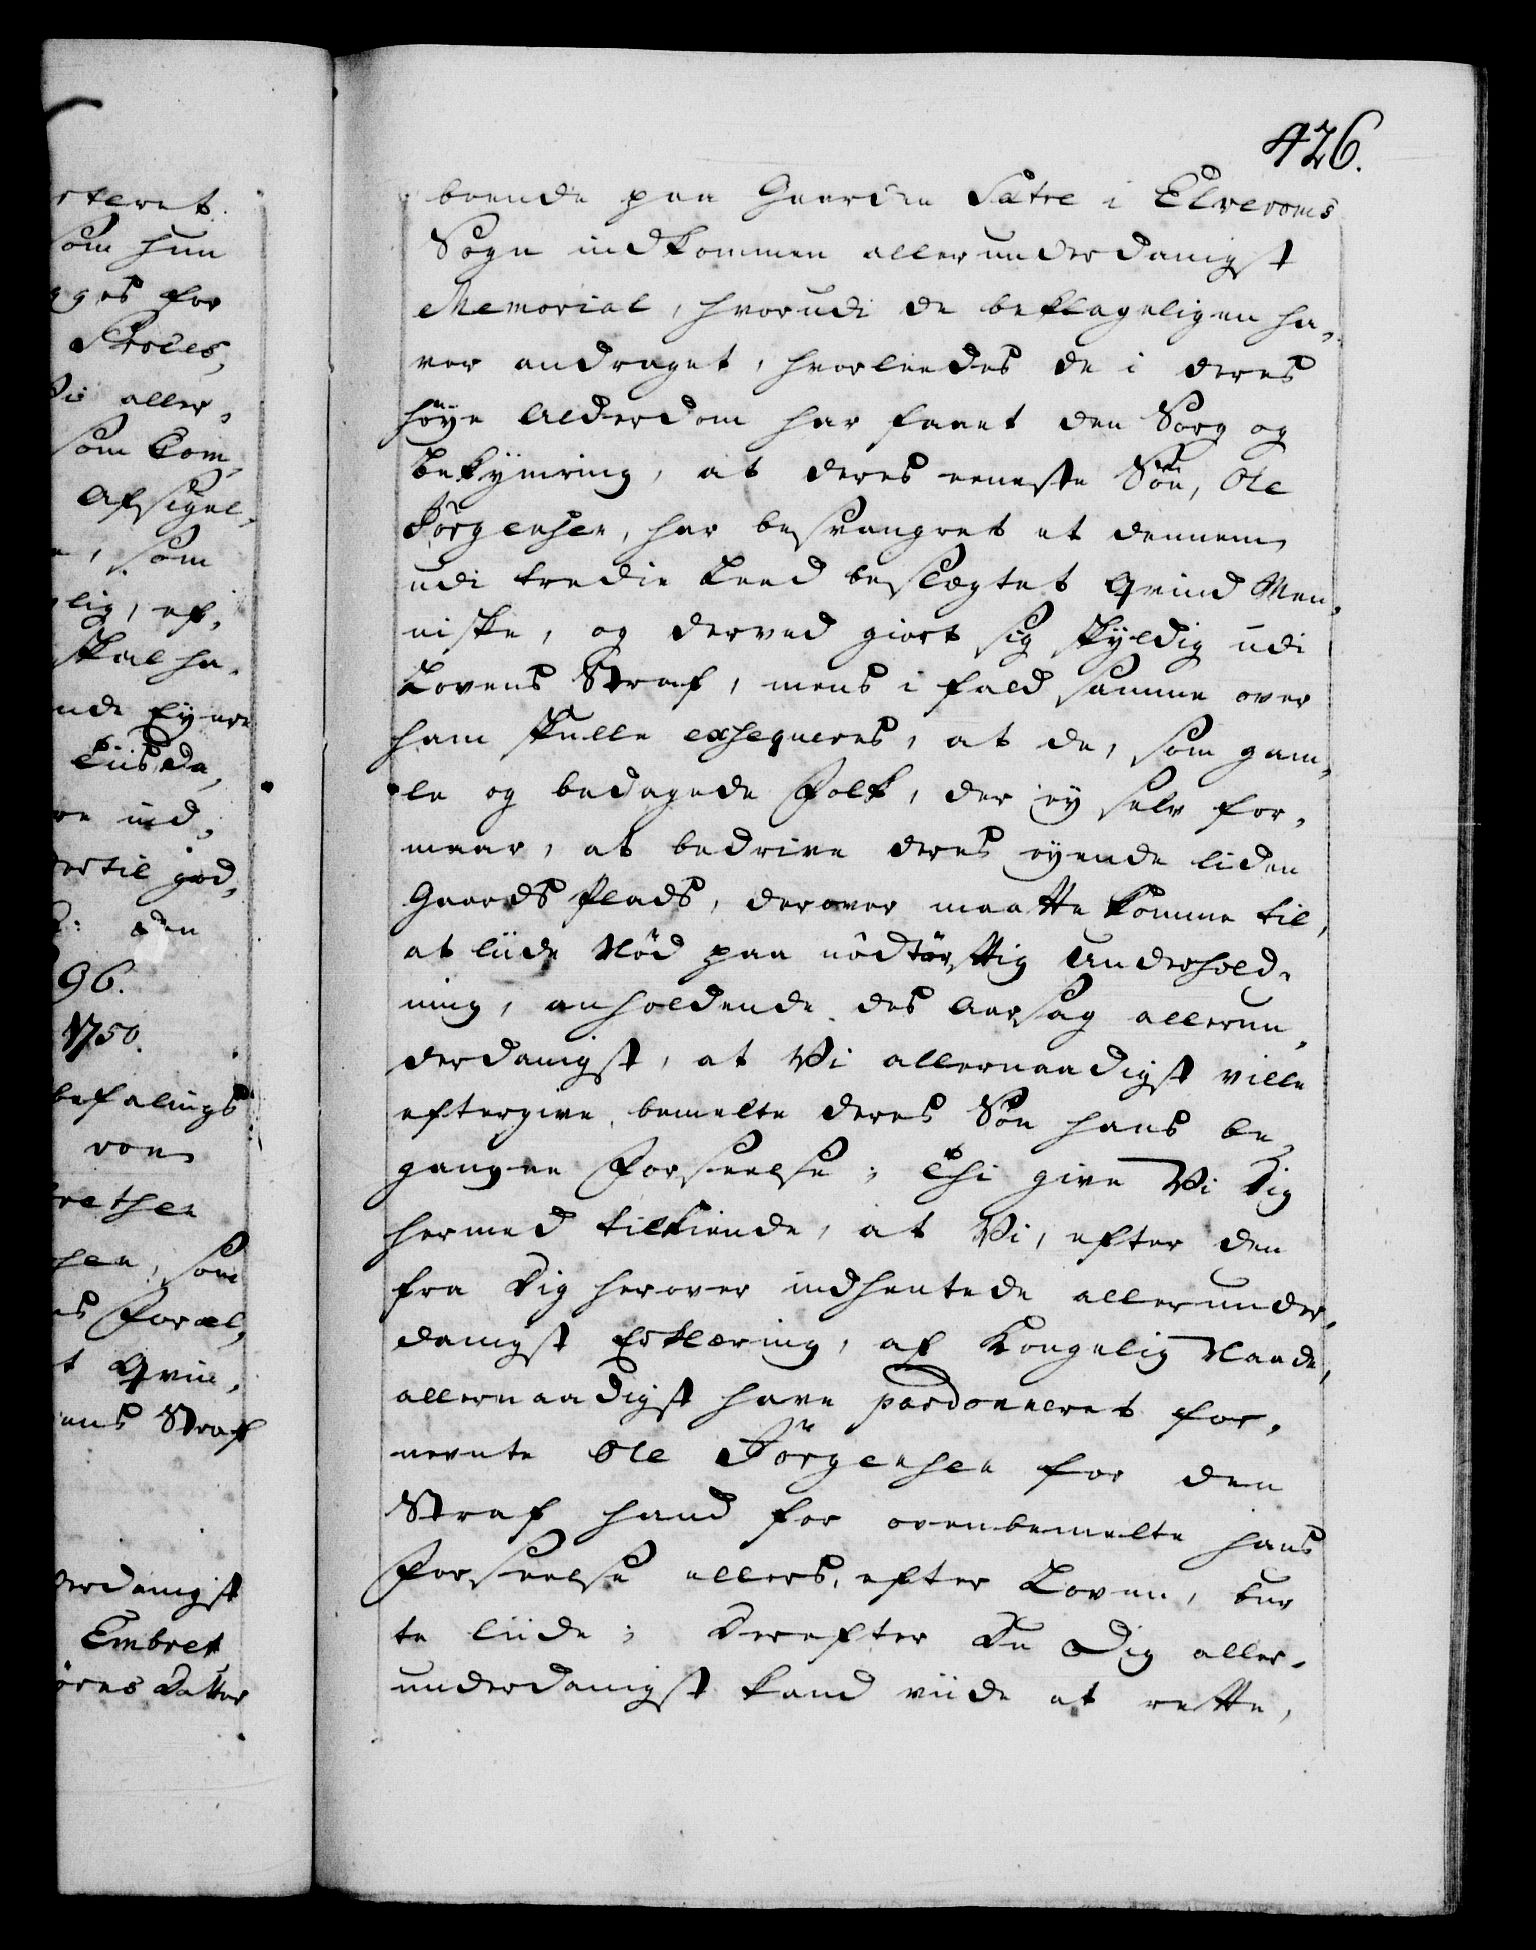 rteret.
som hun
gges for
Skoles,
Vi aller-
som Com-
Afsigel-
e, som
lig, ef-
skal ha-
nde Eyere
Liisda,
re ind-
ertil god-
den
96.
1750.
befalings
von
retsen
sen, som
es Foræl-
t Qvin-
ens Straf
derdanigst
Embret
örns Datter
426.
boende paa Gaarden Sætre i Elveroms
Sogn indkommen allerunderdanigst
Memorial, hvorudi de beklageligen ha-
ver andraget, hvorleedes de i deres
höye Alderdom har faaet den Sorg og
Bekymring, at deres eeneste Sön, Ole
Jörgensen, har besvangret et dennem
udi tredie Leed beslægtet Qvind Men-
niske, og derved giort sig skyldig udi
Lovens Straf, mens i fald samme over
ham skulle exseqveres, at de, som gam-
le og bedagede Folk, der ey selv for-
maar, at bedrive deres eyende liden
Gaards Plads, derover maatte komme til,
at liide Nöd paa nödtörftig Underhold-
ning, anholdende des Aarsag allerun-
derdanigst, at Vi allernaadigst ville
eftergive bemelte deres Sön hans be-
gangne Forseelse; Thi give Vi Dig
hermed tilkiende, at Vi, efter den
fra Dig herover indhentede allerunder-
danigst Erklæring, af Kongelig Naade,
allernaadigst have pardonneret for-
nevnte Ole Jörgensen for den
Straf hand for ovenbemelte hans
Forseelse ellers, efter Loven, bur
te liide; Derefter Du Dig aller-
underdanigst kand viide at rette,